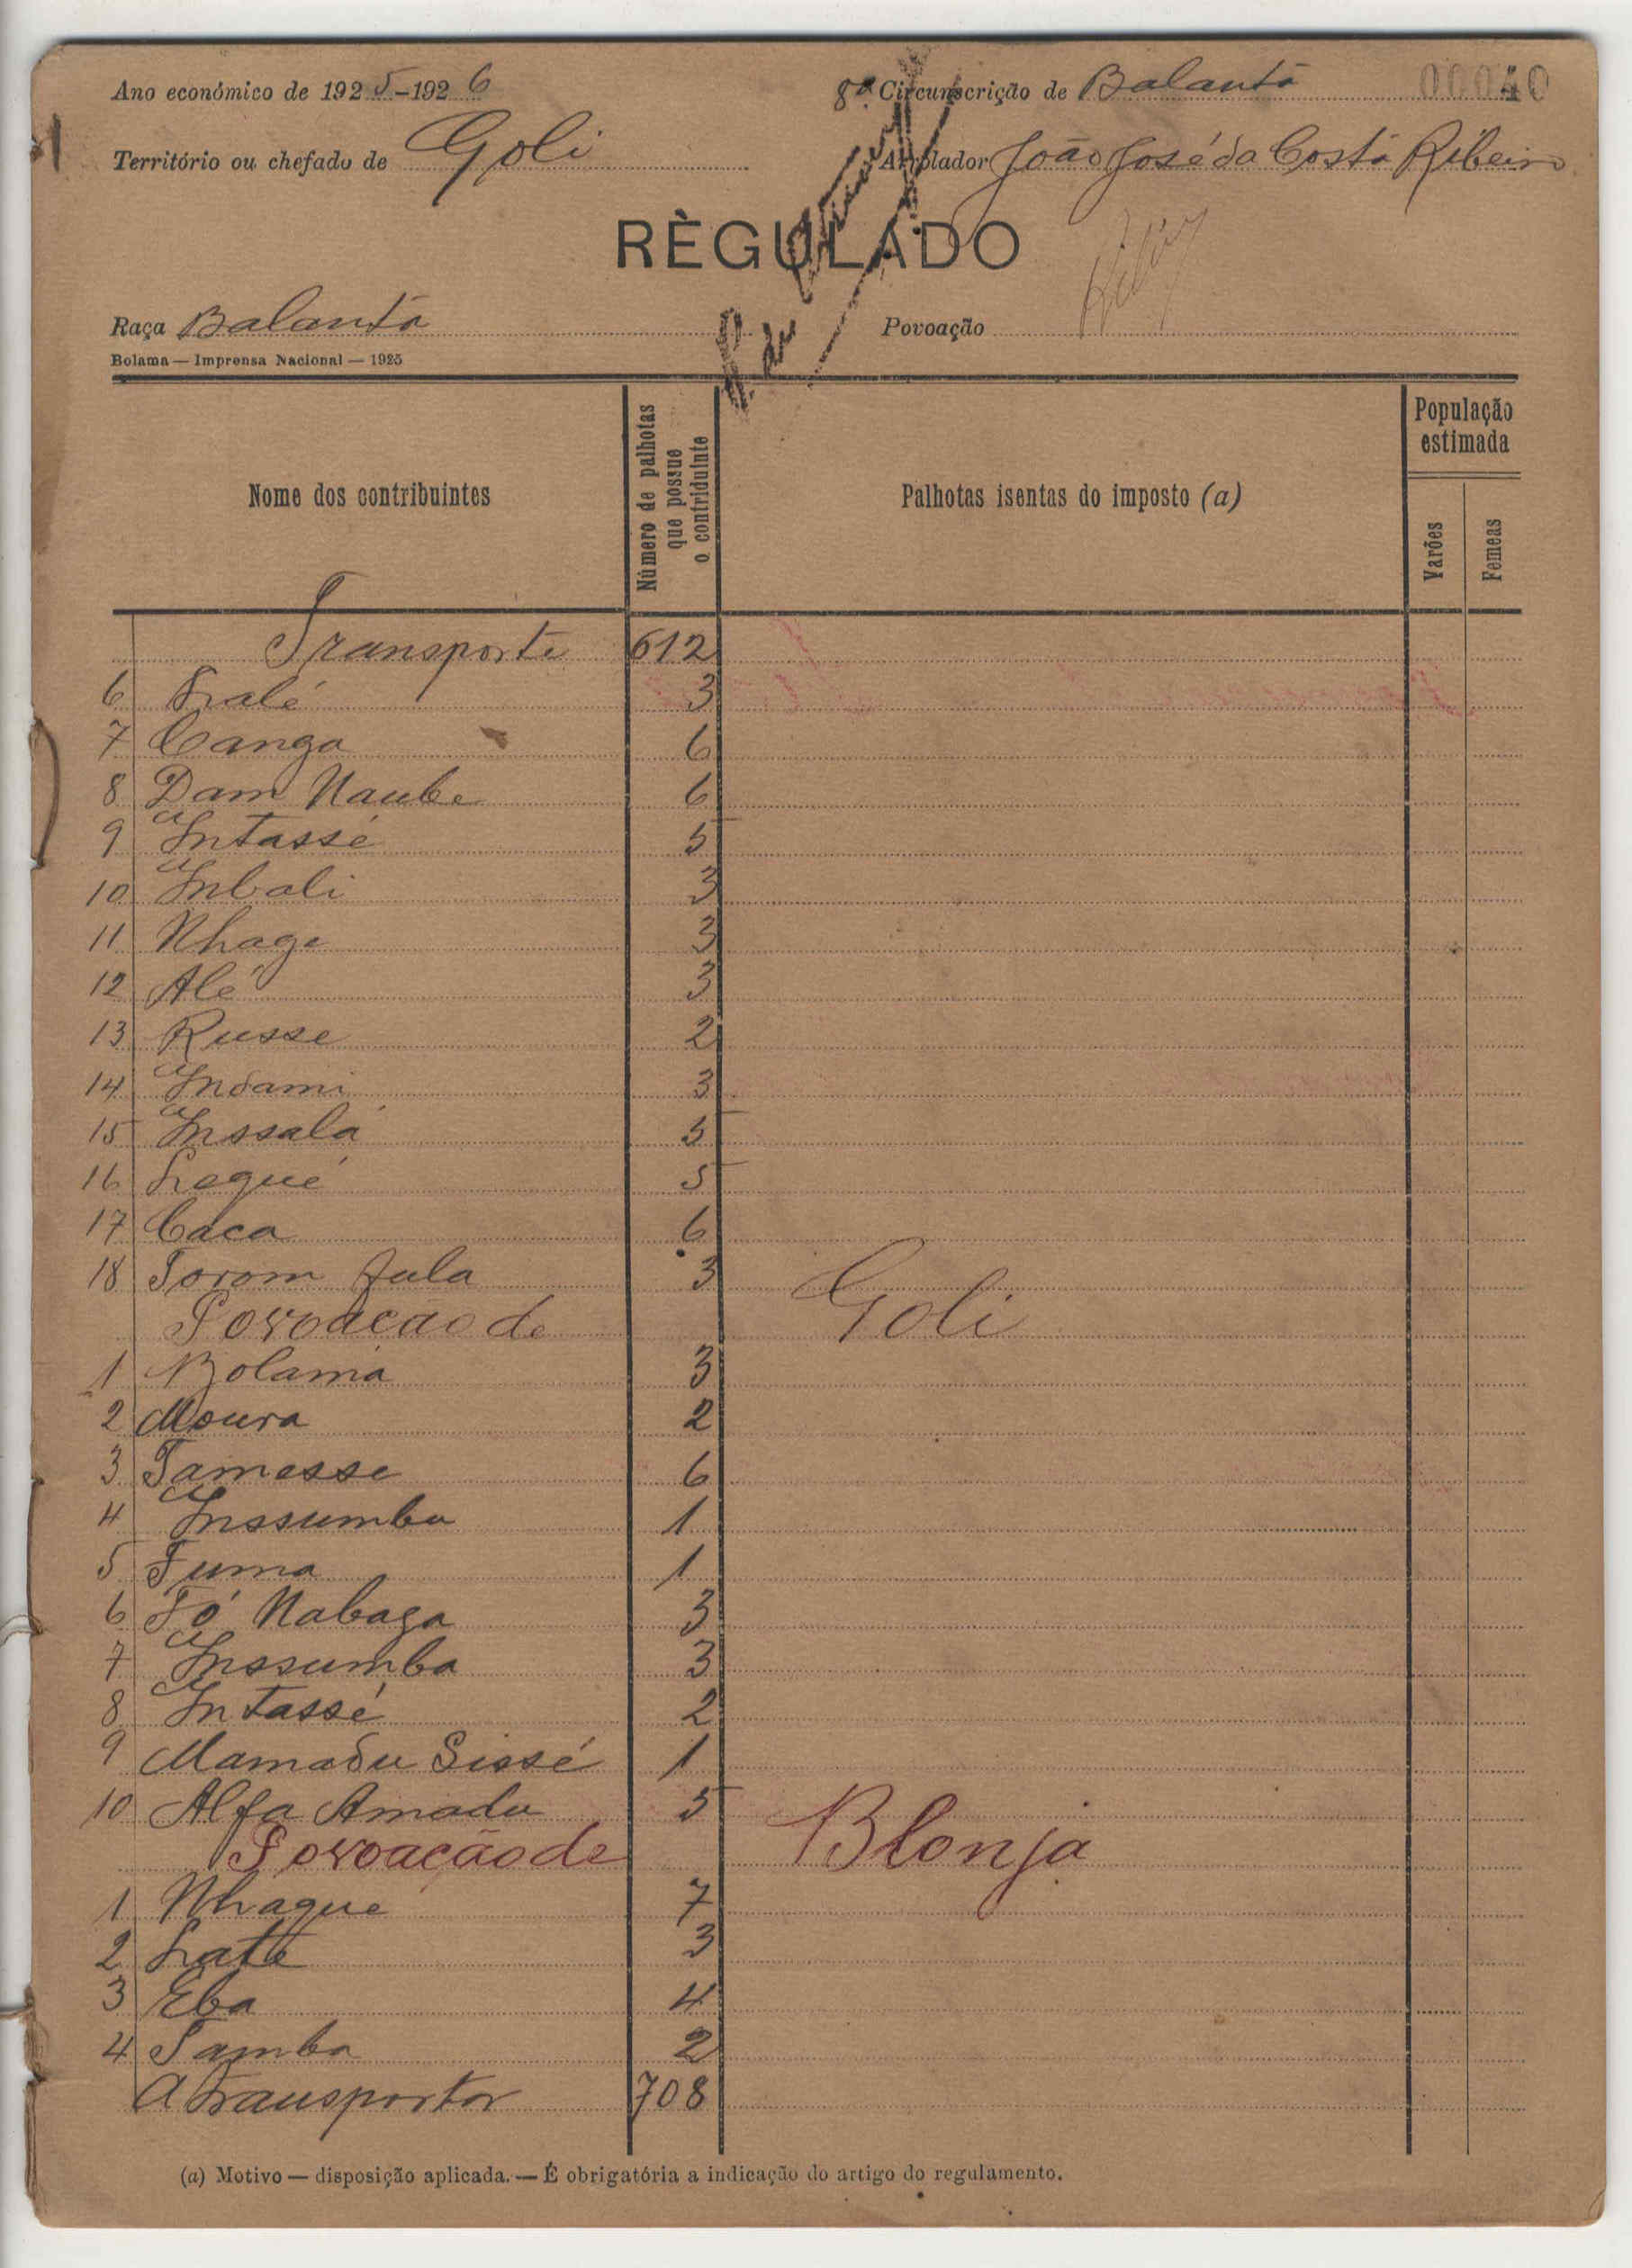 Ano económico de 1925-1926
8ª Circunscrição de Balanta
00040
Território ou chefado de Goli
Arrolador João José da Costa Ribeiro
RÈGULADO
Raça Balanta
Povoação
Bolama — Imprensa Nacional — 1925
Nome dos contribuintes
Número de palhotas que possue o contriduinte
Palhotas isentas do imposto (a)
População estimada
Varões
Femeas
Transporte 612
6 Lalé 3
7 Canga 6
8 Dam Naube 6
9 Intassé 5
10 Inbali 3
11 Nhage 3
12 Alé 3
13 Russe 2
14 Indami 3
15 Inssalá 5
16 Laqué 5
17 Caca 6
18 Torom fula 3
Povoação de Goli
1 Bolama 3
2 Moura 2
3 Tamesse 6
4 Inssumba 1
5 Tuma 1
6 Fó Nabaga 3
7 Inssumba 3
8 Intassé 2
9 Mamadu Sissé 1
10 Alfa Amadu 5
Povoação de Blonja
1 Nhague 7
2 Late 3
3 Eba 4
4 Samba 2
A transportar 708
(a) Motivo — disposição aplicada. — É obrigatória a indicação do artigo do regulamento.